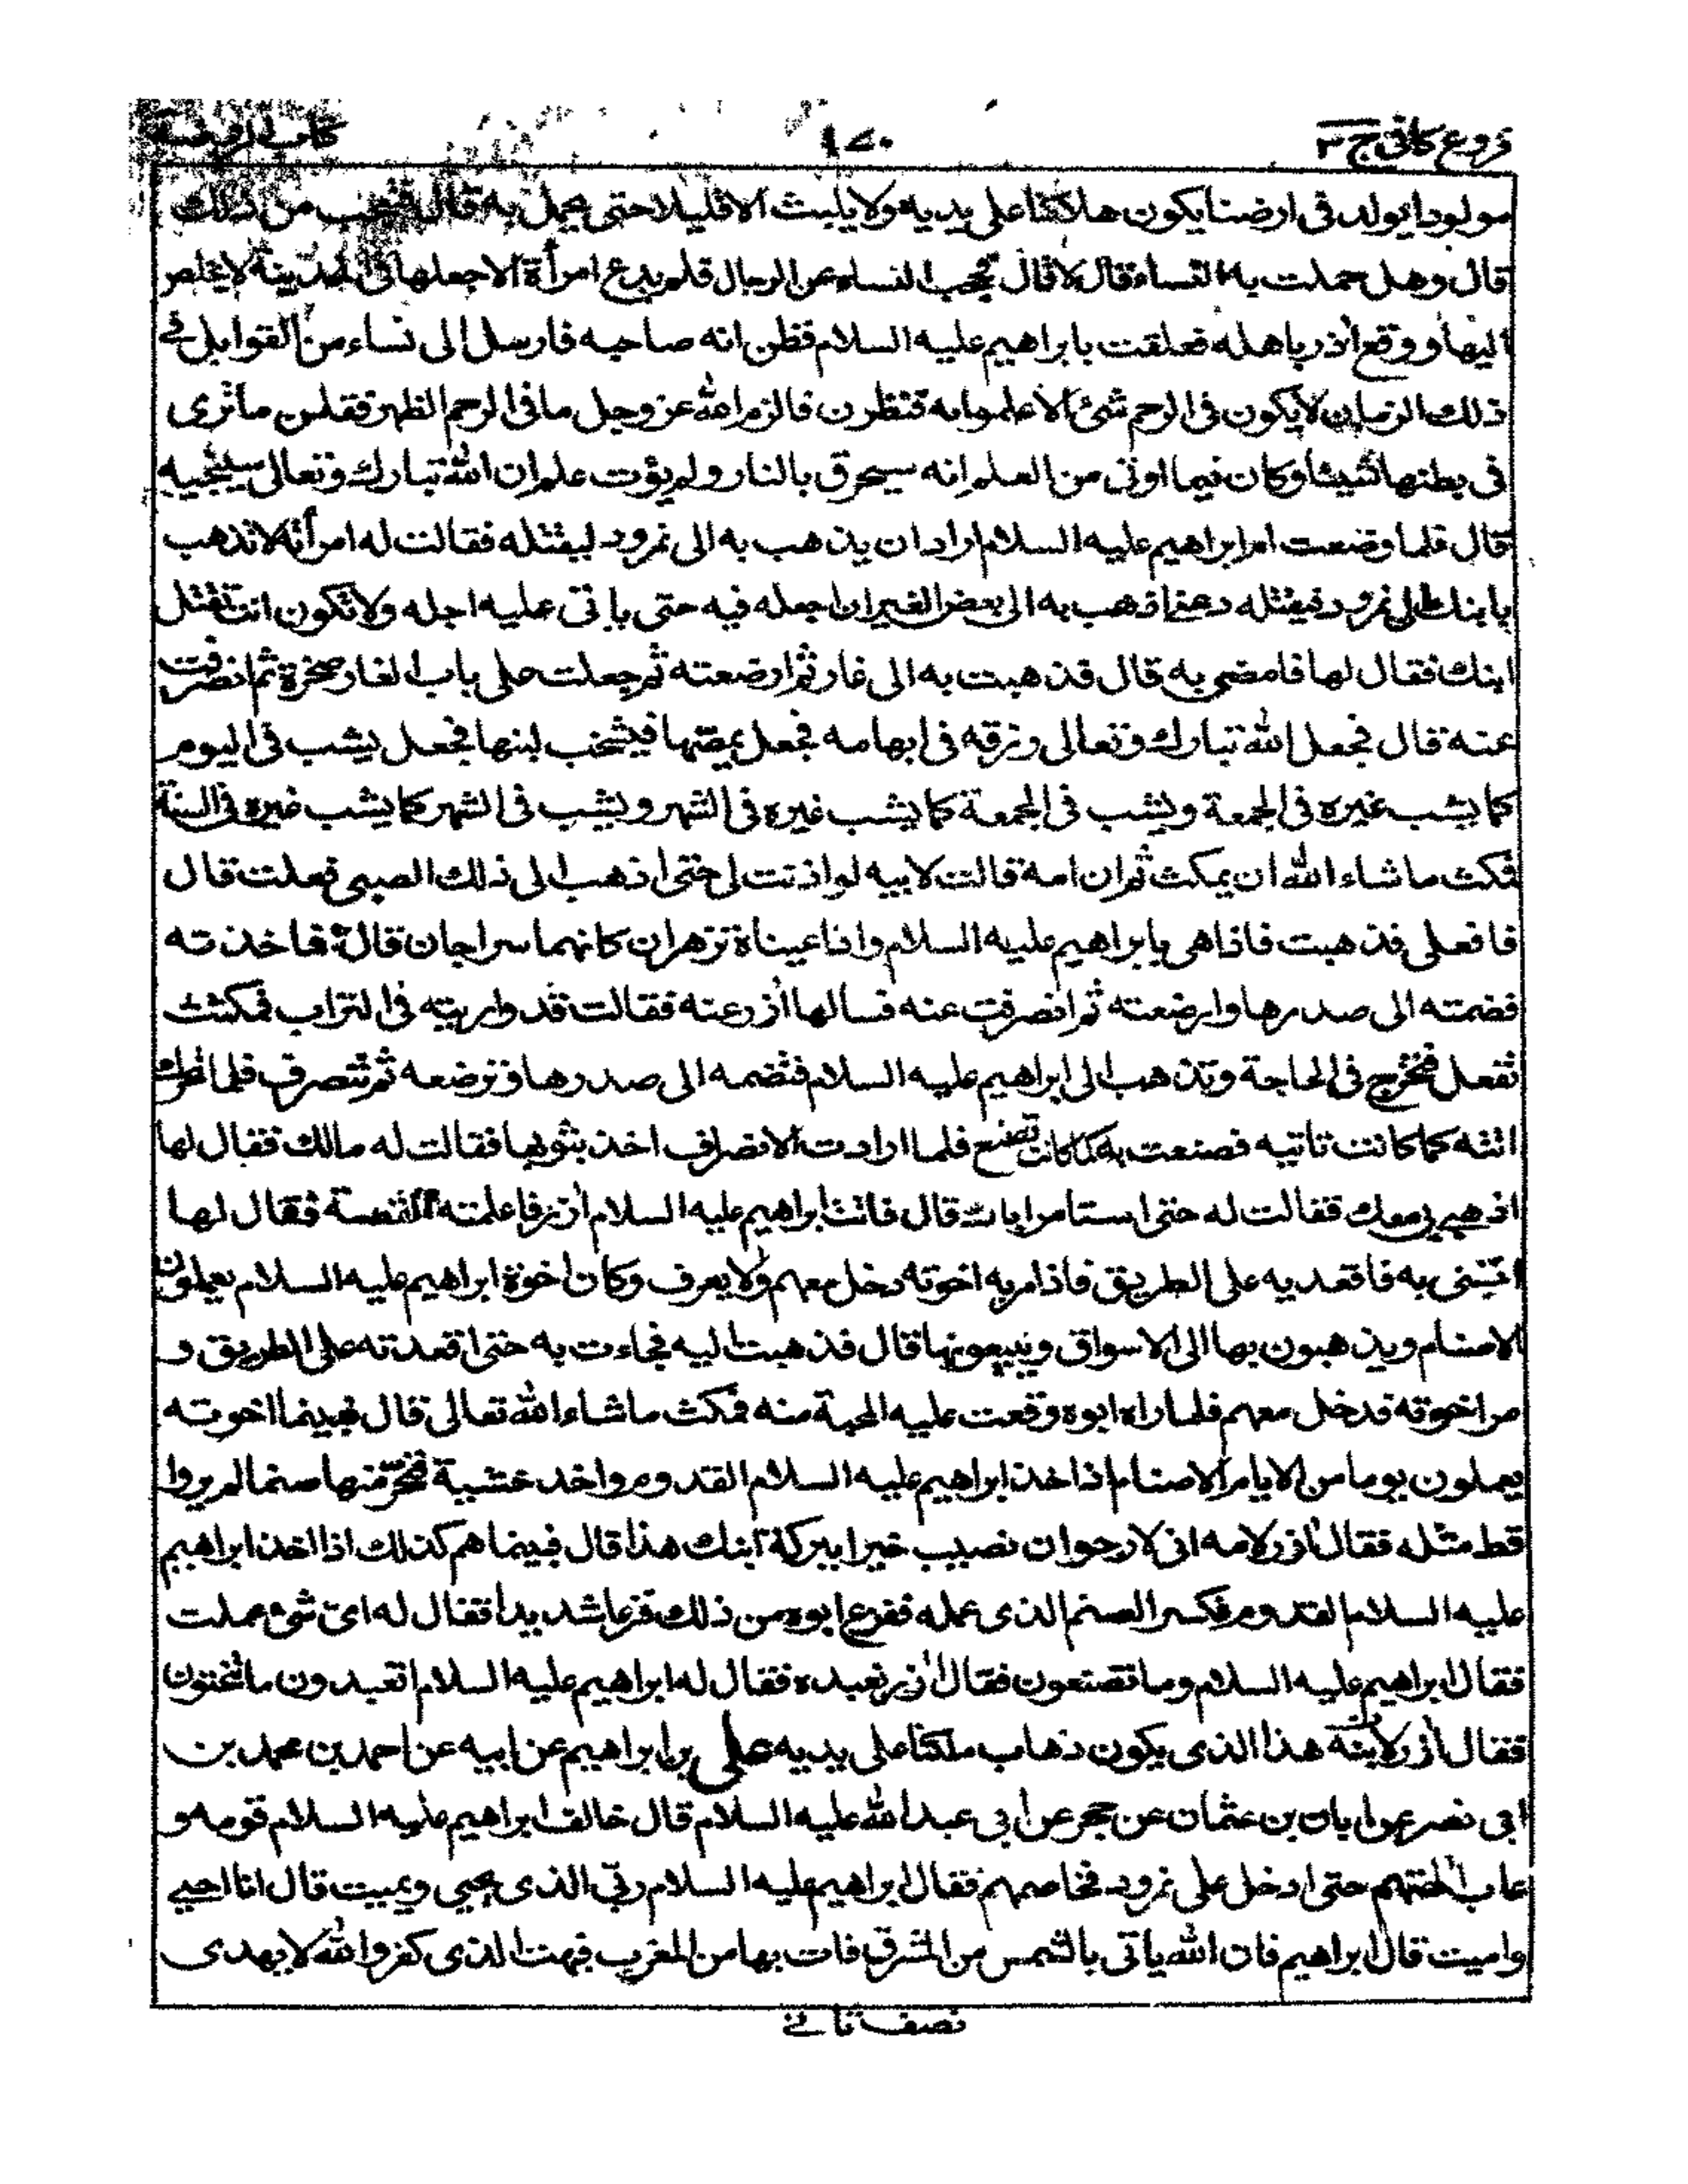 فروع كافى ج ٣
١٧٠
كتاب الروضة
مولودا يولد فى ارضنا يكون هلاكنا على يديه ولا يلبث الا قليلا حتى يحمل به قال فتعجب من ذلك
قال وهل حملت به النساء قال لا قال فحجب النساء عن الرجال فلم يدع امرأة الا جعلها فى المدينة لا يخلص
اليها ووقع اٰزر باهله فعلقت بابراهيم عليه السلام فظن انه صاحبه فارسل الى نساء من القوابل فى
ذلك الزمان لا يكون فى الرحم شئ الا علموا به فنظرن فالزم الله عز وجل ما فى الرحم الظهر فقلن ما نرى
فى بطنها شيئا وكان فيما اوتى من العلم انه سيحرق بالنار ولم يؤت علم ان الله تبارك وتعالى سينجيه
قال فلما وضعت ام ابراهيم عليه السلام اراد ان يذهب به الى نمرود ليقتله فقالت له امرأته لا تذهب
بابنك الى نمرود فيقتله دعنى اذهب به الى بعض الغيران اجعله فيه حتى ياتى عليه اجله ولا تكون انت تقتل
ابنك فقال لها فامضى به قال فذهبت به الى غار ثم ارضعته ثم جعلت على باب الغار صخرة ثم انصرفت
عنه قال فجعل الله تبارك وتعالى رزقه فى ابهامه فجعل يمصها فيشخب لبنها فجعل يشب فى اليوم
كما يشب غيره فى الجمعة ويشب فى الجمعة كما يشب غيره فى الشهر ويشب فى الشهر كما يشب غيره فى السنة
فمكث ما شاء الله ان يمكث ثم ان امه قالت لابيه لو اذنت لى حتى اذهب الى ذلك الصبى فعلت قال
فافعلى فذهبت فاذا هى بابراهيم عليه السلام واذا عيناه تزهران كانهما سراجان قال فاخذته
فضمته الى صدرها وارضعته ثم انصرفت عنه فسالها اٰزر عنه فقالت قد واريته فى التراب فمكثت
تفعل فتخرج فى الحاجة وتذهب الى ابراهيم عليه السلام فتضمه الى صدرها وترضعه ثم تنصرف فلما تحرك
اتته كما كانت تاتيه فصنعت به كما كانت تصنع فلما ارادت الانصراف اخذ بثوبها فقالت له مالك فقال لها
اذهبى بى معك فقالت له حتى استامر اباك قال فاتت ابراهيم عليه السلام اٰزر فاعلمته القصة فقال لها
ائتينى به فاقعديه على الطريق فاذا مر به اخوته دخل معهم ولا يعرف وكان اخوة ابراهيم عليه السلام يعملون
الاصنام ويذهبون بها الى الاسواق ويبيعونها قال فذهبت اليه فجاءت به حتى اقعدته على الطريق و
مر اخوته فدخل معهم فلما راه ابوه وقعت عليه المحبة منه فمكث ما شاء الله تعالى قال فبينما اخوته
يعملون يوما من الايام الاصنام اذا اخذ ابراهيم عليه السلام القدوم واخذ خشبة فنجر منها صنما لم يروا
قط مثله فقال اٰزر لامه انى لارجو ان نصيب خيرا ببركة ابنك هذا قال فبينما هم كذلك اذا اخذ ابراهيم
عليه السلام القدوم فكسر الصنم الذى عمله ففزع ابوه من ذلك فزعا شديدا فقال له اى شئ عملت
فقال ابراهيم عليه السلام وما تصنعون فقال اٰزر نعبده فقال له ابراهيم عليه السلام اتعبدون ما تنحتون
فقال اٰزر لابنه هذا الذى يكون ذهاب ملكنا على يديه على بن ابراهيم عن ابيه عن احمد بن محمد بن
ابى نصر عن ابان بن عثمان عن حجر عن ابى عبد الله عليه السلام قال خالف ابراهيم عليه السلام قومه و
عاب اٰلهتهم حتى ادخل على نمرود فخاصمهم فقال ابراهيم عليه السلام ربى الذى يحيى ويميت قال انا احيى
واميت قال ابراهيم فان الله ياتى بالشمس من المشرق فات بها من المغرب فبهت الذى كفر والله لا يهدى
نصف ثانى